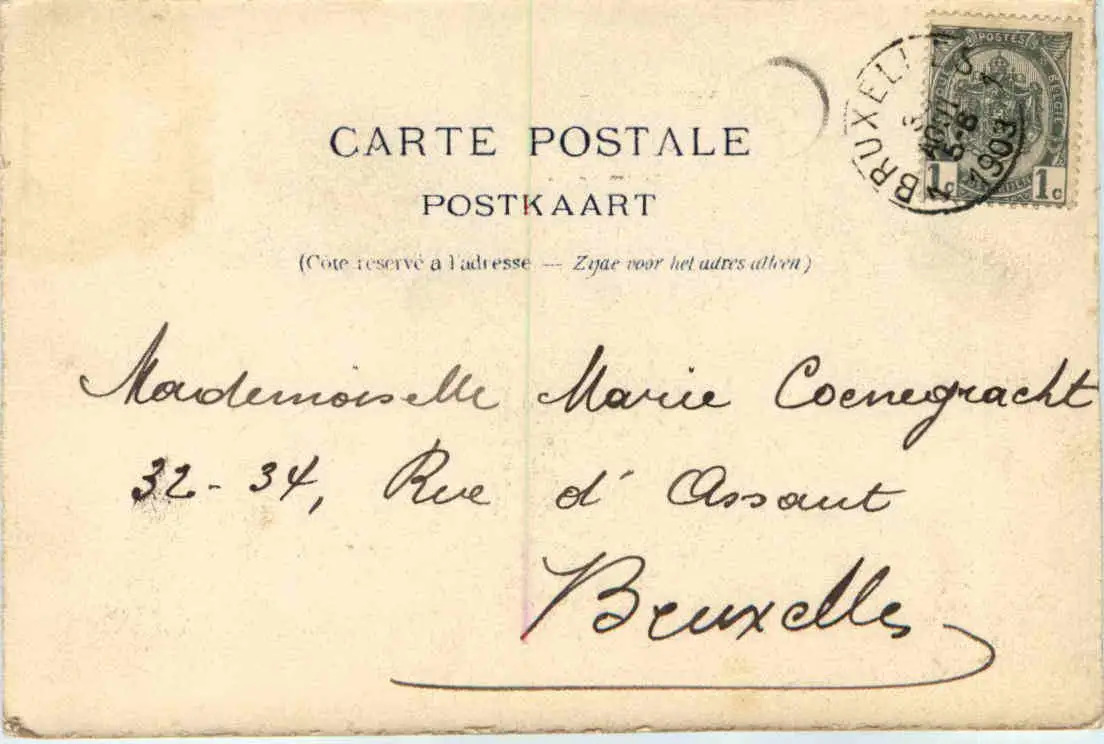 CARTE POSTALE
POSTKAART
(Côté réservé à l'adresse — Zijde voor het adres alleen)
POSTES
BELGIE
1c 1c
BRUXELLES 1
AOUT
5-6
1903
Mademoiselle Marie Coenegracht
32-34, Rue d'Assaut
Bruxelles